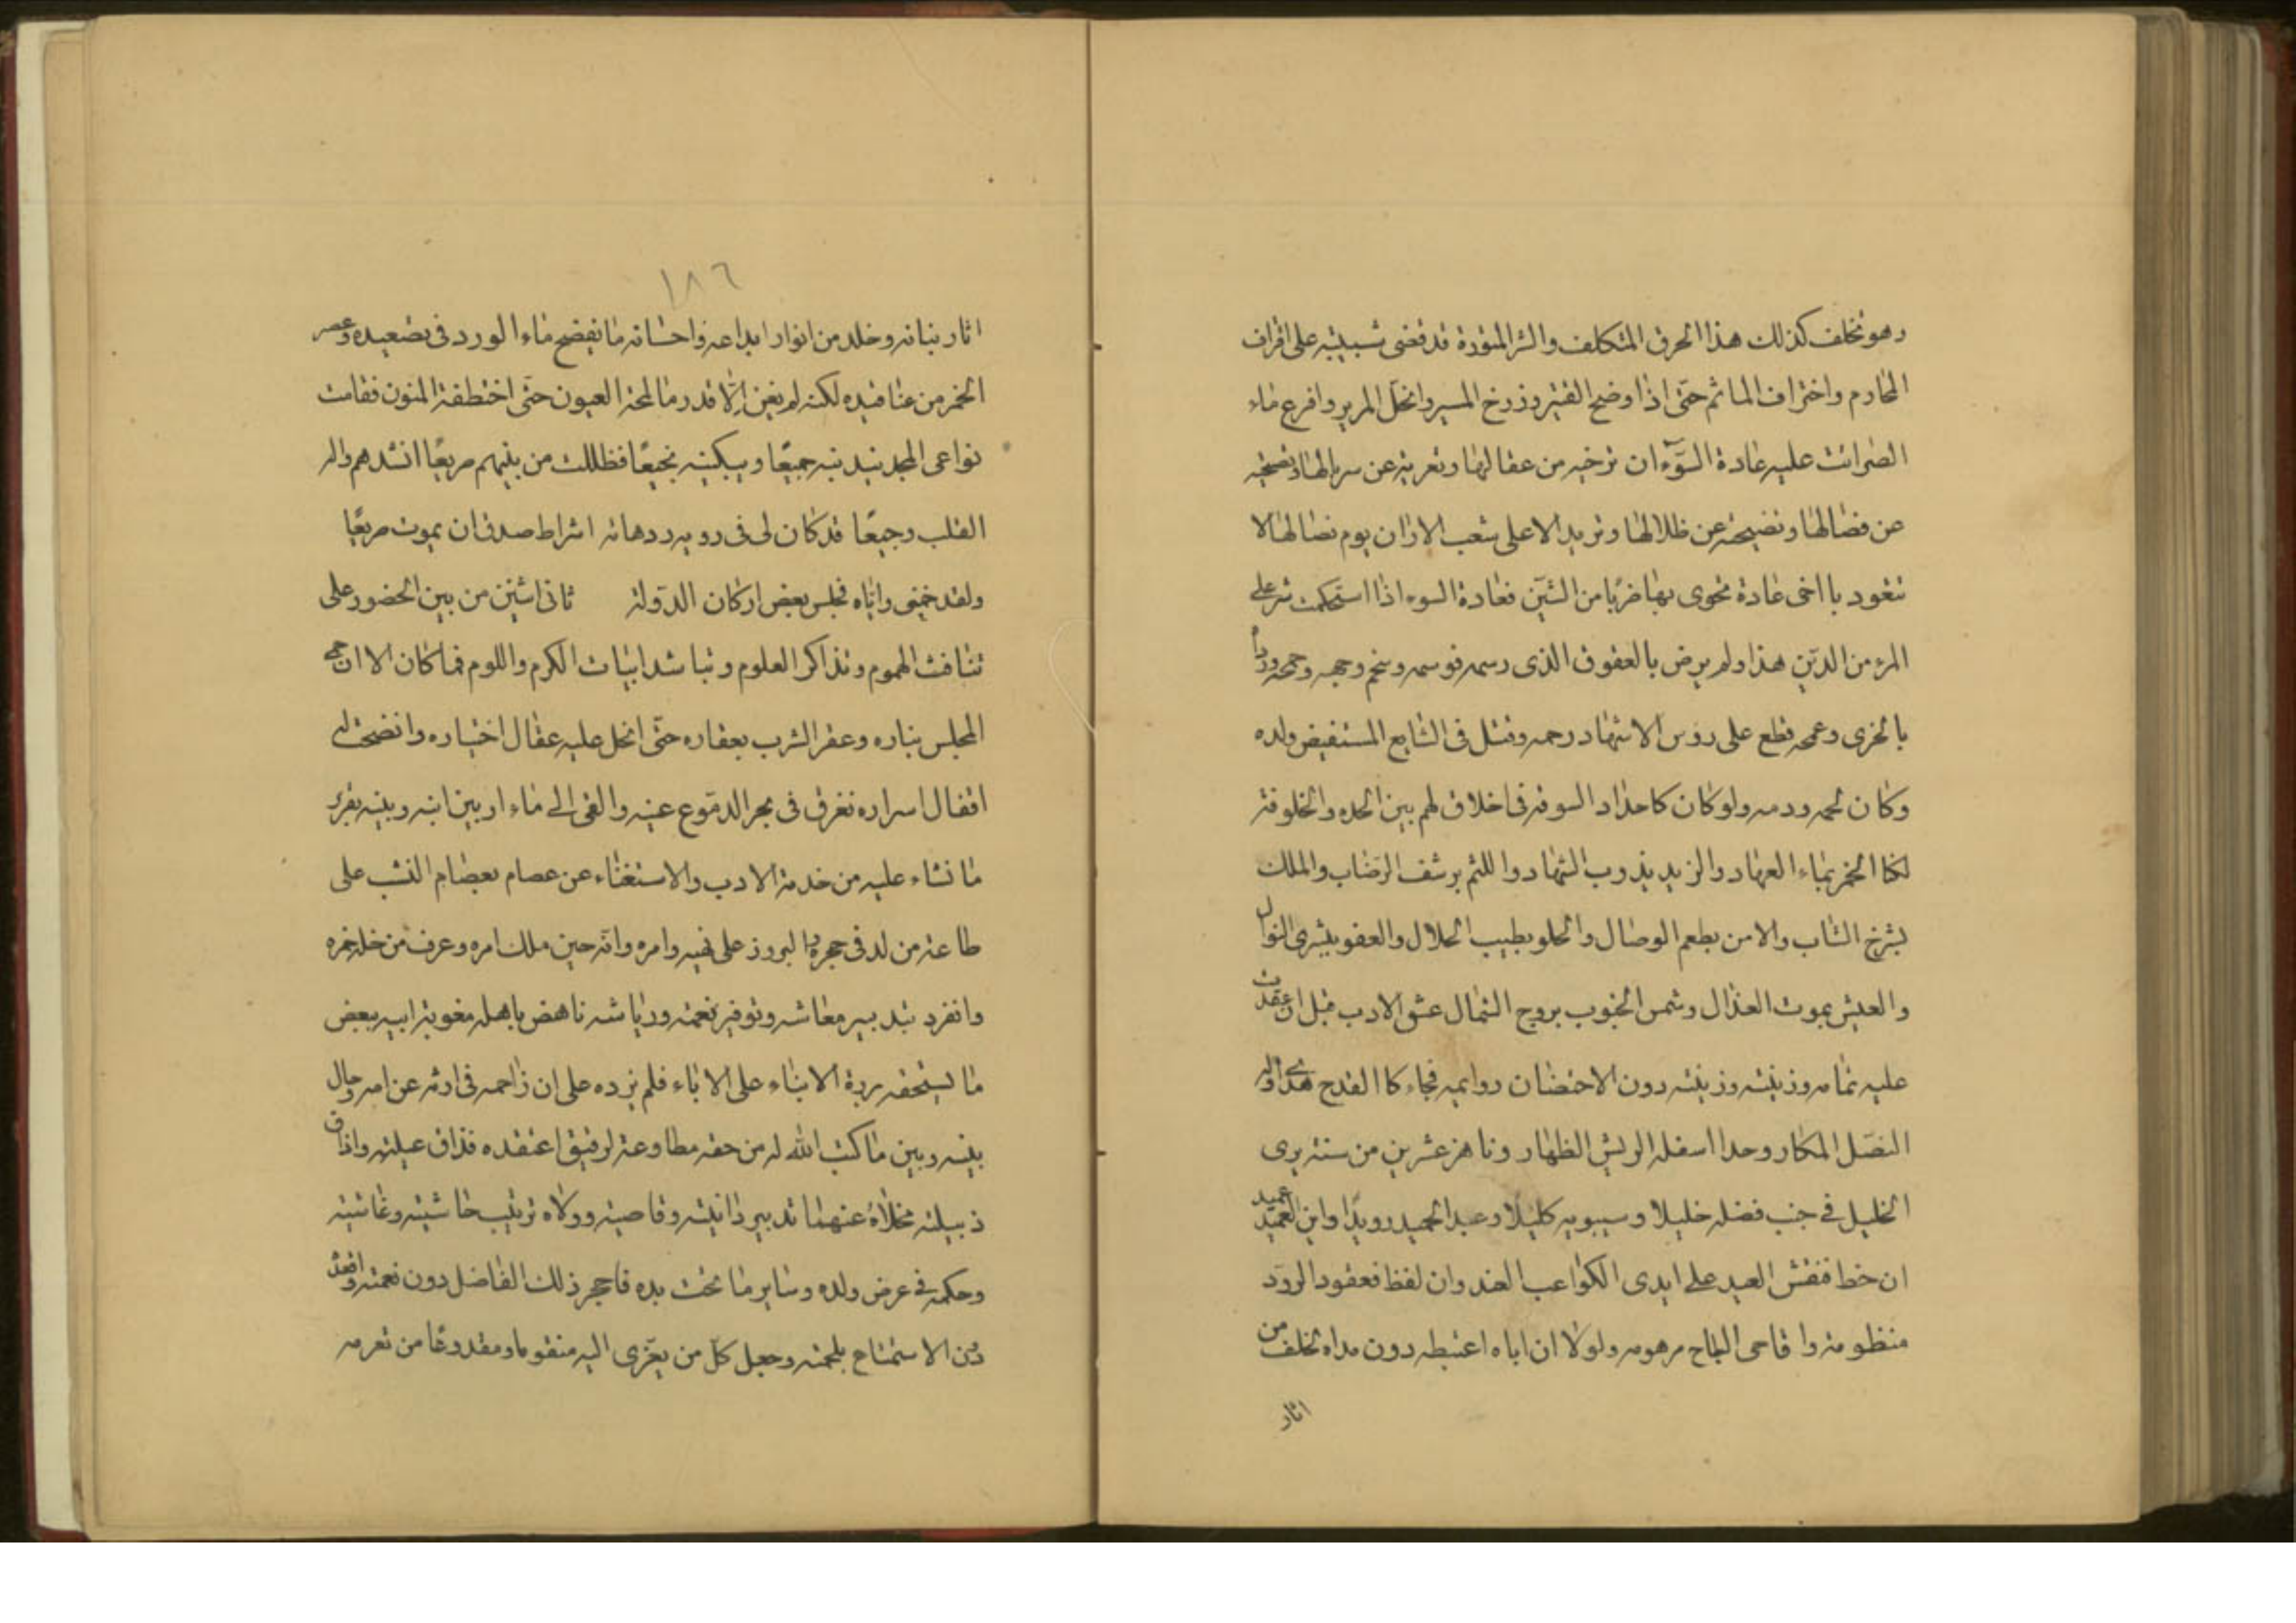 وهو تخلف كذلك هذا الخرق المتكلف والشر المتورة قد قضى شبيبته على اقراف
المحارم واختراف المآثم حتى اذا وضح القتير المسير وانحل المرير وافرع ماء
عليه عادة السوء ان ترخيه من عقالها وتعريه عن سربالها وتضحيه
عن فضالها وتضيحه عن ظلالها وتريد الا على شعب الاذان يوم نضالها لا
تتعود يا اخى عادة تحوى بها ضربا من الشين فعادة السوء اذا استحكمت شر على
المرء من الدين هذا ولم يرض بالعقوق الذى رسمه
بالخزى وعمه قطع على رؤس الاشهاد رحمه وقتل فى الشايع المستفيض ولده
وكان لحمه ودمه ولو كان كاحداد السوقة فى اخلاق لهم بين الحده والخلوقة
لكنا الخمر بماء العهاد والزبد بذوب الشهاد واللثم برشف الرضاب والملك
بشرخ الشاب والامن بطعم الوصال والحلو بطيب الحلال والعفو ببشرى النوال
والعيش بموت العذال وشمس الجنوب بروح الشمال عشق الادب قبل ان عقدت
عليه تمامه وزينته وزينته دون الاحتضان روايمه فجاء كا القدح
النصل المكار وحدا اسفله الريش الظهار وناهز عشرين من سنته يرى
الخليل فى جنب فضله خليلا وسيبويه كليلا وعبد الحميد رويدا وابن العميد عميد
ان خط فنقش العبد على ايدى الكواعب الغيد وان لفظ فعقود الرود
منظومة واقاحى البطاح مرهومه ولولا ان اباه اعتبطه دون مداه لخلف من
اثار
١٨٦
اثار بنانه وخلد من انوار ابداعه واحسانه ما يفضح ماء الورد فى تصعيده وعصر
الخمر من عناقيده لكنه لم يغن الا قدر ما لمحته العيون حتى اختطفته المنون فقامت
نواعى المجد يندبنه جميعا ويبكينه نجيعا فظللت من بينهم صريعا انشدهم واله
القلب وجيعا قد كان لى فى رويه ودهائه اشراط صدق ان يموت صريعا
ولقد ضمنى واياه مجلس بعض اركان الدولة ثانى اثنين من بين الحضور على
تنافث الهموم وتذاكر العلوم وتناشد ابيات الكرم واللوم فما كان الا ان حمى
المجلس بناره وعقر الشرب بعقاره حتى انحل عليه عقال اختياره وانفتحت له
اقفال اسراره فغرق فى بحر الدموع عينه والقى الى ماء اربين ابنه وبينه بفرك
ما نشاء عليه من خدمة الادب والاستغناء عن عصام بعصام النسب على
طاعته من لد فى حجره البروز على نفسه وامره وانه حين ملك امره وعرف من خله خمره
وانفرد بتدبير معاشه وتوفير نعمته ورياشه ناهض باهله مغوثة ابيه ببعض
ما يستحقه بردة الابناء على الاباء فلم يزده على ان زاحمه فى ارثه عن امه وحال
بينه وبين ما كتب الله له من حقه مطاوعة لرفيق اعتقده فذاق عيلته واذاق
ذبيلته مخلاة عنهما تدبير دانيته وقاصيته وولاه ترتيب حاشيته وغاشيته
وحكمه فى عرض ولده وساير ما تحت يده فاحجر ذلك الفاضل دون نعمته واقعده
دون الاستمتاع بلحمته وجعل كل من يعزى اليه منقوما ومقدوعا من تعرمه